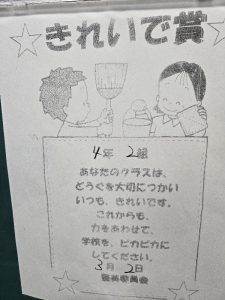 きれいで賞
4年 2組
あなたのクラスは、
どうぐを大切につかい
いつも、きれいです。
これからも、
力をあわせて、
学校を、ピカピカに
してください。
3月 2日
委員会